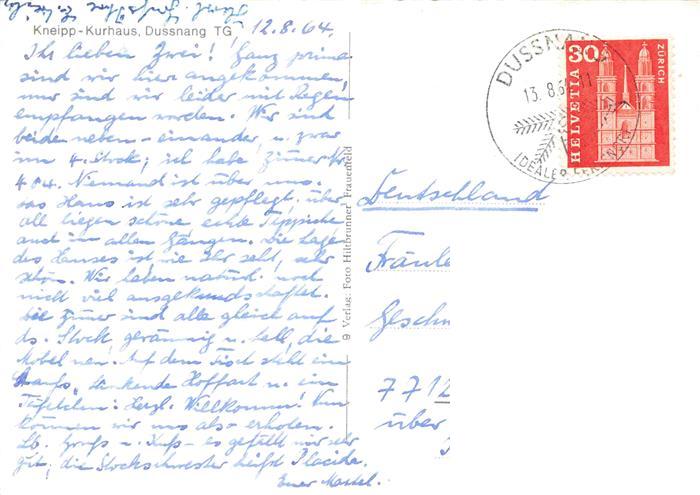 Kneipp-Kurhaus, Dussnang TG
12.8.64.
Ihr lieben Zwei! Ganz prima
sind wir hier angekommen,
nur sind wir leider mit Regen
empfangen worden. Wir sind
beide neben-einander, u. zwar
im 4. Stock, ich habe Zimmer Nr
404. Niemand ist über uns.
das Haus ist sehr gepflegt. über
all liegen schöne echte Teppiche
auch in allen Gängen. die Lage
des Hauses ist wie Ihr seht, sehr
schön. Wir haben natürl. noch
nicht viel ausgekundschaftet.
die Zimer sind alle gleich auf
ds. Stock, geräumig u. hell, die
Möbel neu. Auf dem Tisch steht ein
u. ein
Täfelchen: Herzl. Willkommen! Nun
können wir uns also erholen.
Lb. Gruß u. Kuß - es gefällt mir sehr
gut, die Stockschwester heißt Placida.
Euer
9 Verlag: Foto Hiltbrunner, Frauenfeld
DUSSNANG
13.8.6
11
IDEALER
30
HELVETIA
ZÜRICH
Deutschland
Fräule
Geschw
7712
über